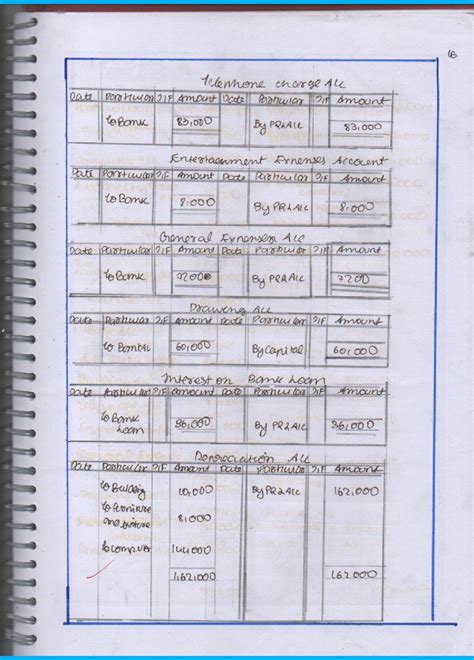 16
Telephone charge A/c
Date Particular J/F Amount Date Particular J/F Amount
To Bank 83,000 By PR&A/c 83,000
Entertainment Expenses Account
Date Particular J/F Amount Date Particular J/F Amount
To Bank 8,000 By PR&A/c 8,000
General Expenses A/c
Date Particular J/F Amount Date Particular J/F Amount
To Bank 7200 By PR&A/c 7200
Drawing A/c
Date Particular J/F Amount Date Particular J/F Amount
To Bank 601,000 By Capital 601,000
Interest on Bank Loan
Date Particular J/F Amount Date Particular J/F Amount
To Bank 36,000 By PR&A/c 36,000
Loan
Depreciation A/c
Date Particular J/F Amount Date Particular J/F Amount
To Building 10,000 By PR&A/c 162,000
To Furniture
and fixture 8,000
To Computer 144,000
1,62,000 162,000